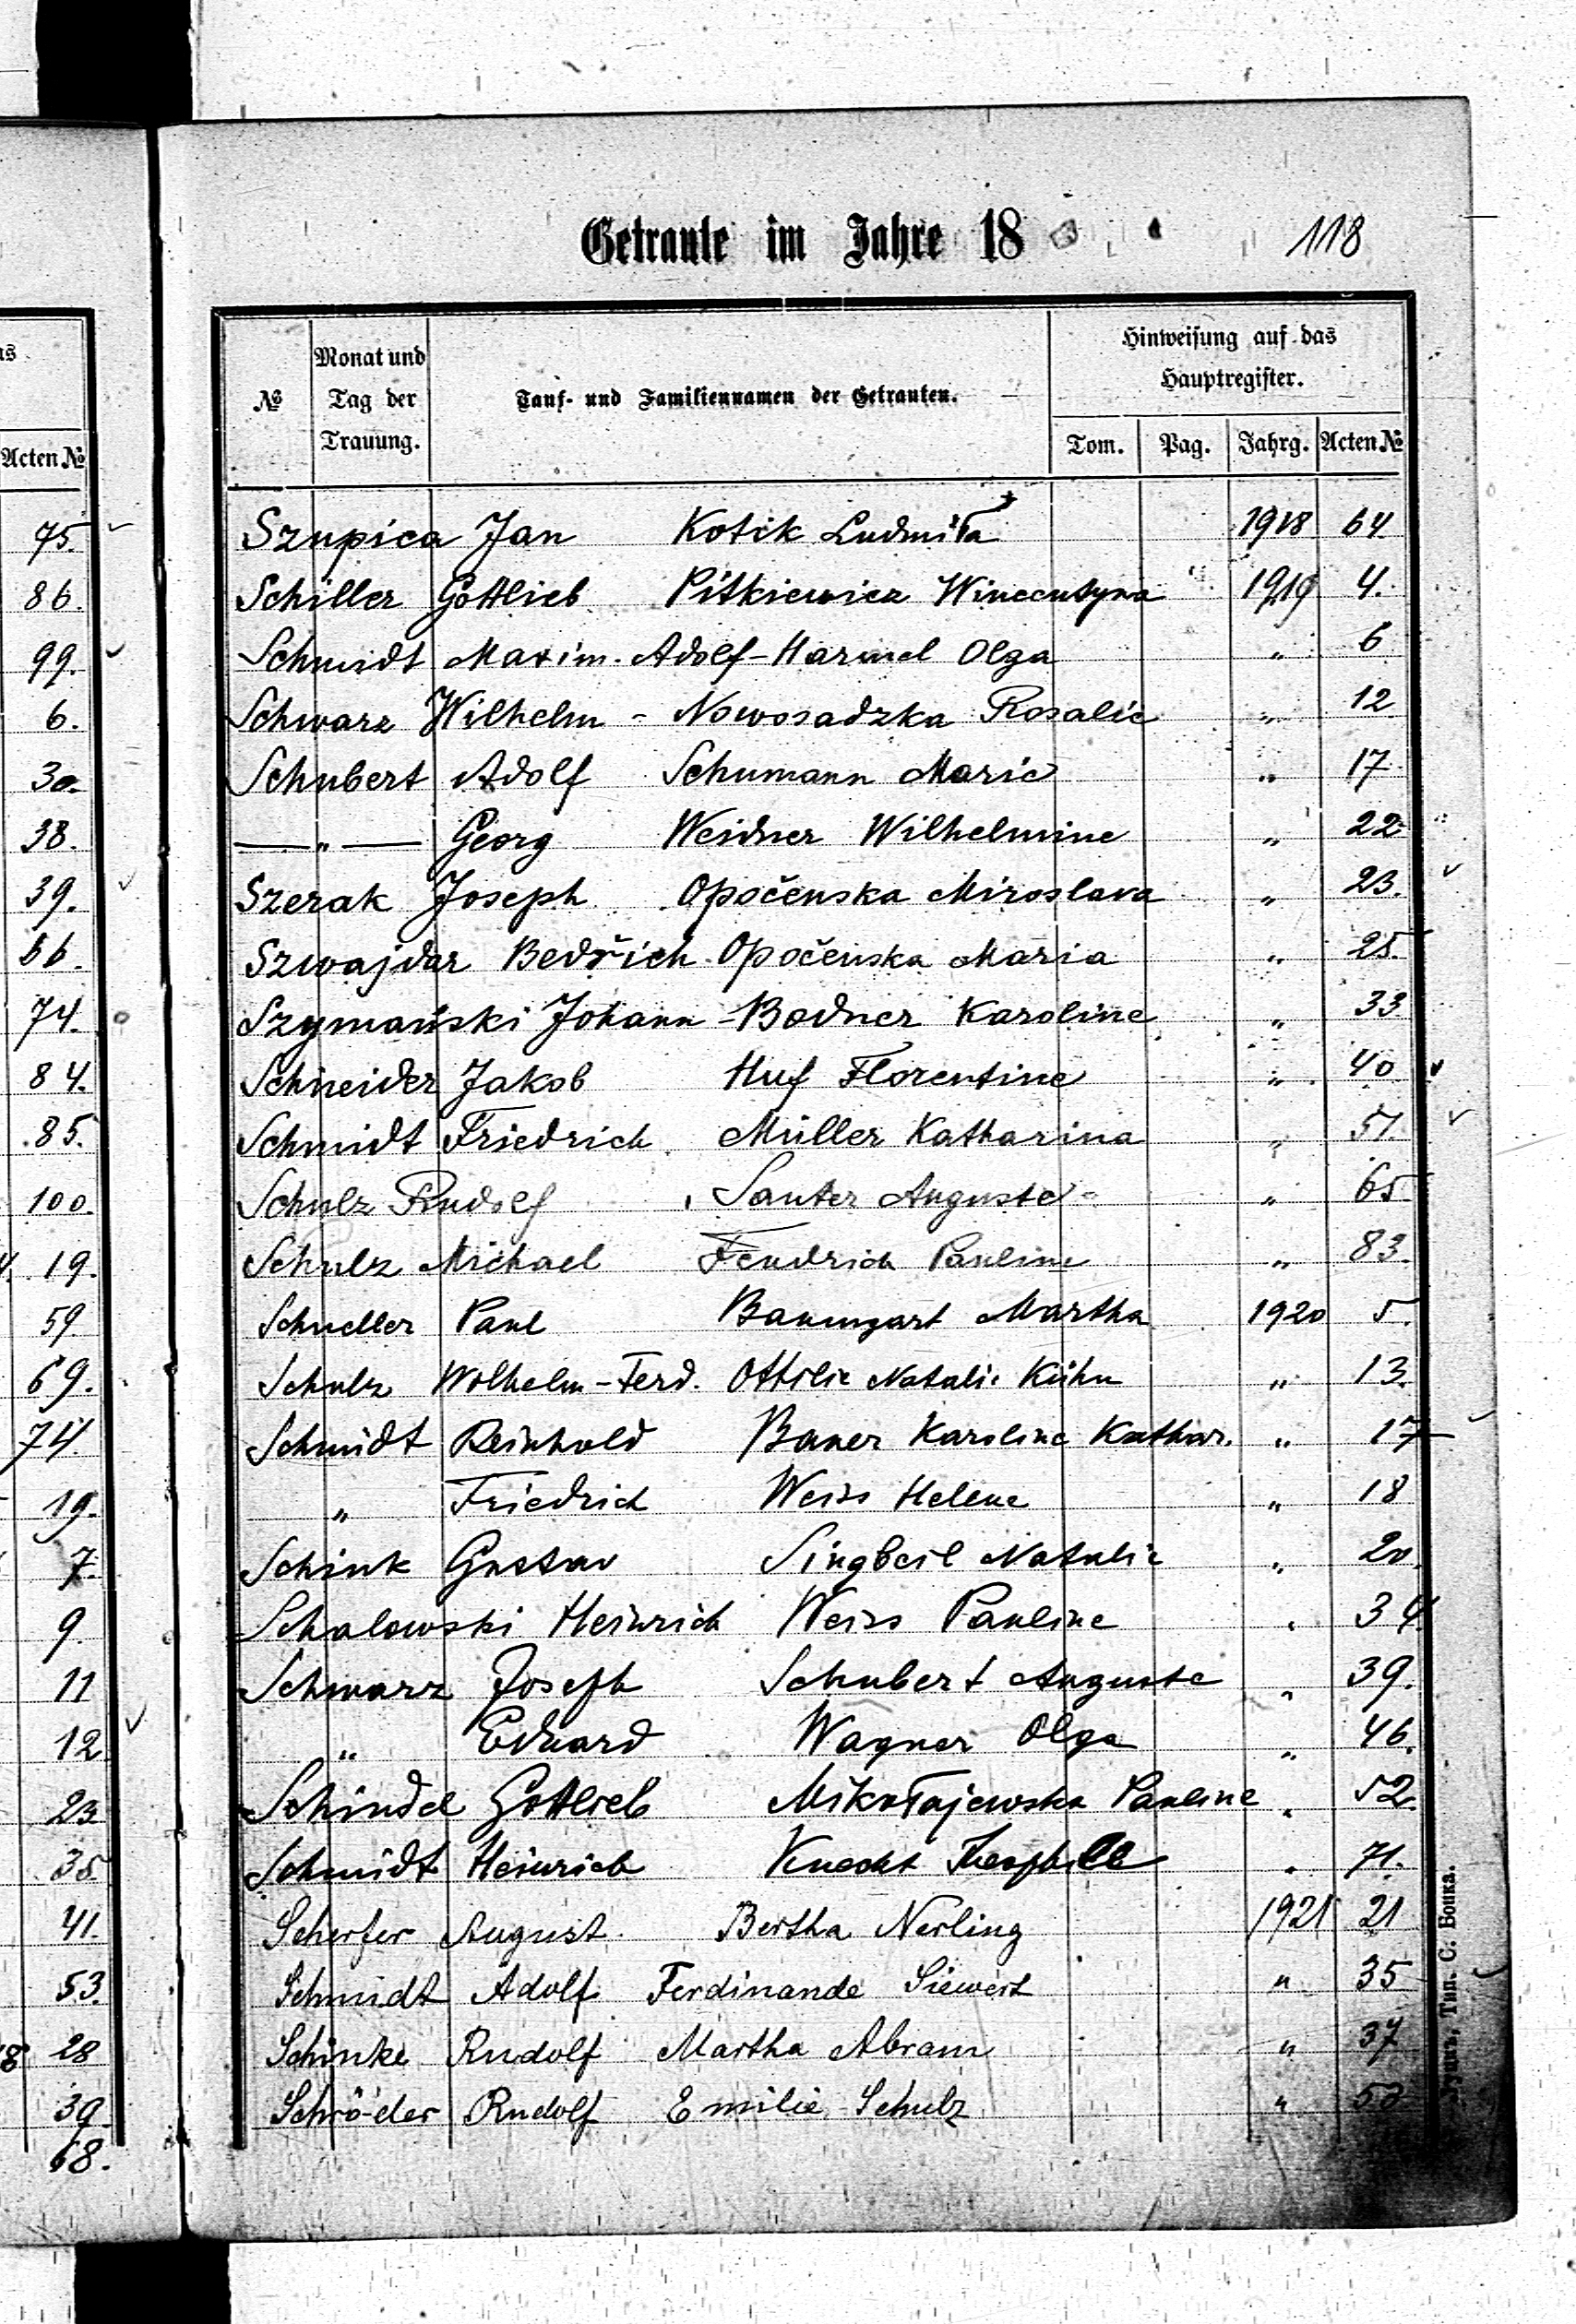 Getraute im Jahre 18 118
№ Monat und Tag der Trauung. Tauf- und Familiennamen der Getrauten. Hinweisung auf das Hauptregister.
Tom. Pag. Jahrg. Acten №
Szupica Jan Kotik Ludmiła 1918 64
Schiller Gottlieb Pitkiewicz Wincentyna 1919 4.
Schmidt Maxim. Adolf - Harmel Olga " 6
Schwarz Wilhelm - Nowosadzka Rosalie " 12
Schubert Adolf Schumann Marie " 17
— " — Georg Weidner Wilhelmine " 22
Szerak Joseph Opočenska Miroslava " 23.
Szwajdar Bedřich Opočenska Maria " 25.
Szymański Johann - Bodner Karoline " 33
Schneider Jakob Huf Florentine " 40
Schmidt Friedrich Müller Katharina " 51.
Schulz Rudolf Sauter Auguste " 65
Schulz Michael Fendrich Pauline " 83.
Schneller Paul Baumgart Martha 1920 5.
Schulz Wilhelm-Ferd. Ottilie Natalie Kühn " 13.
Schmidt Reinhold Bauer Karoline Kathar. " 17
" Friedrich Weiss Helene " 18
Schink Gustav Singbeil Natalie " 20.
Schalowski Heinrich Weiss Pauline " 34.
Schwarz Joseph Schubert Auguste " 39.
" Eduard Wagner Olga " 46.
Schindel Gottlieb Mikołajewska Pauline " 52.
Schmidt Heinrich Knecht " 71.
Scherfer August Bertha Nerling 1921 21
Schmidt Adolf Ferdinande Siewert " 35
Schinke Rudolf Martha Abram " 37
Schröder Rudolf Emilie Schulz "
Acten №
75.
86.
99.
6.
30.
38.
39.
66.
74.
84.
85.
100.
19.
59.
69.
74.
19.
7.
9.
11
12
23
35
41.
53.
28
39
68.
Тип. С. Вонка.